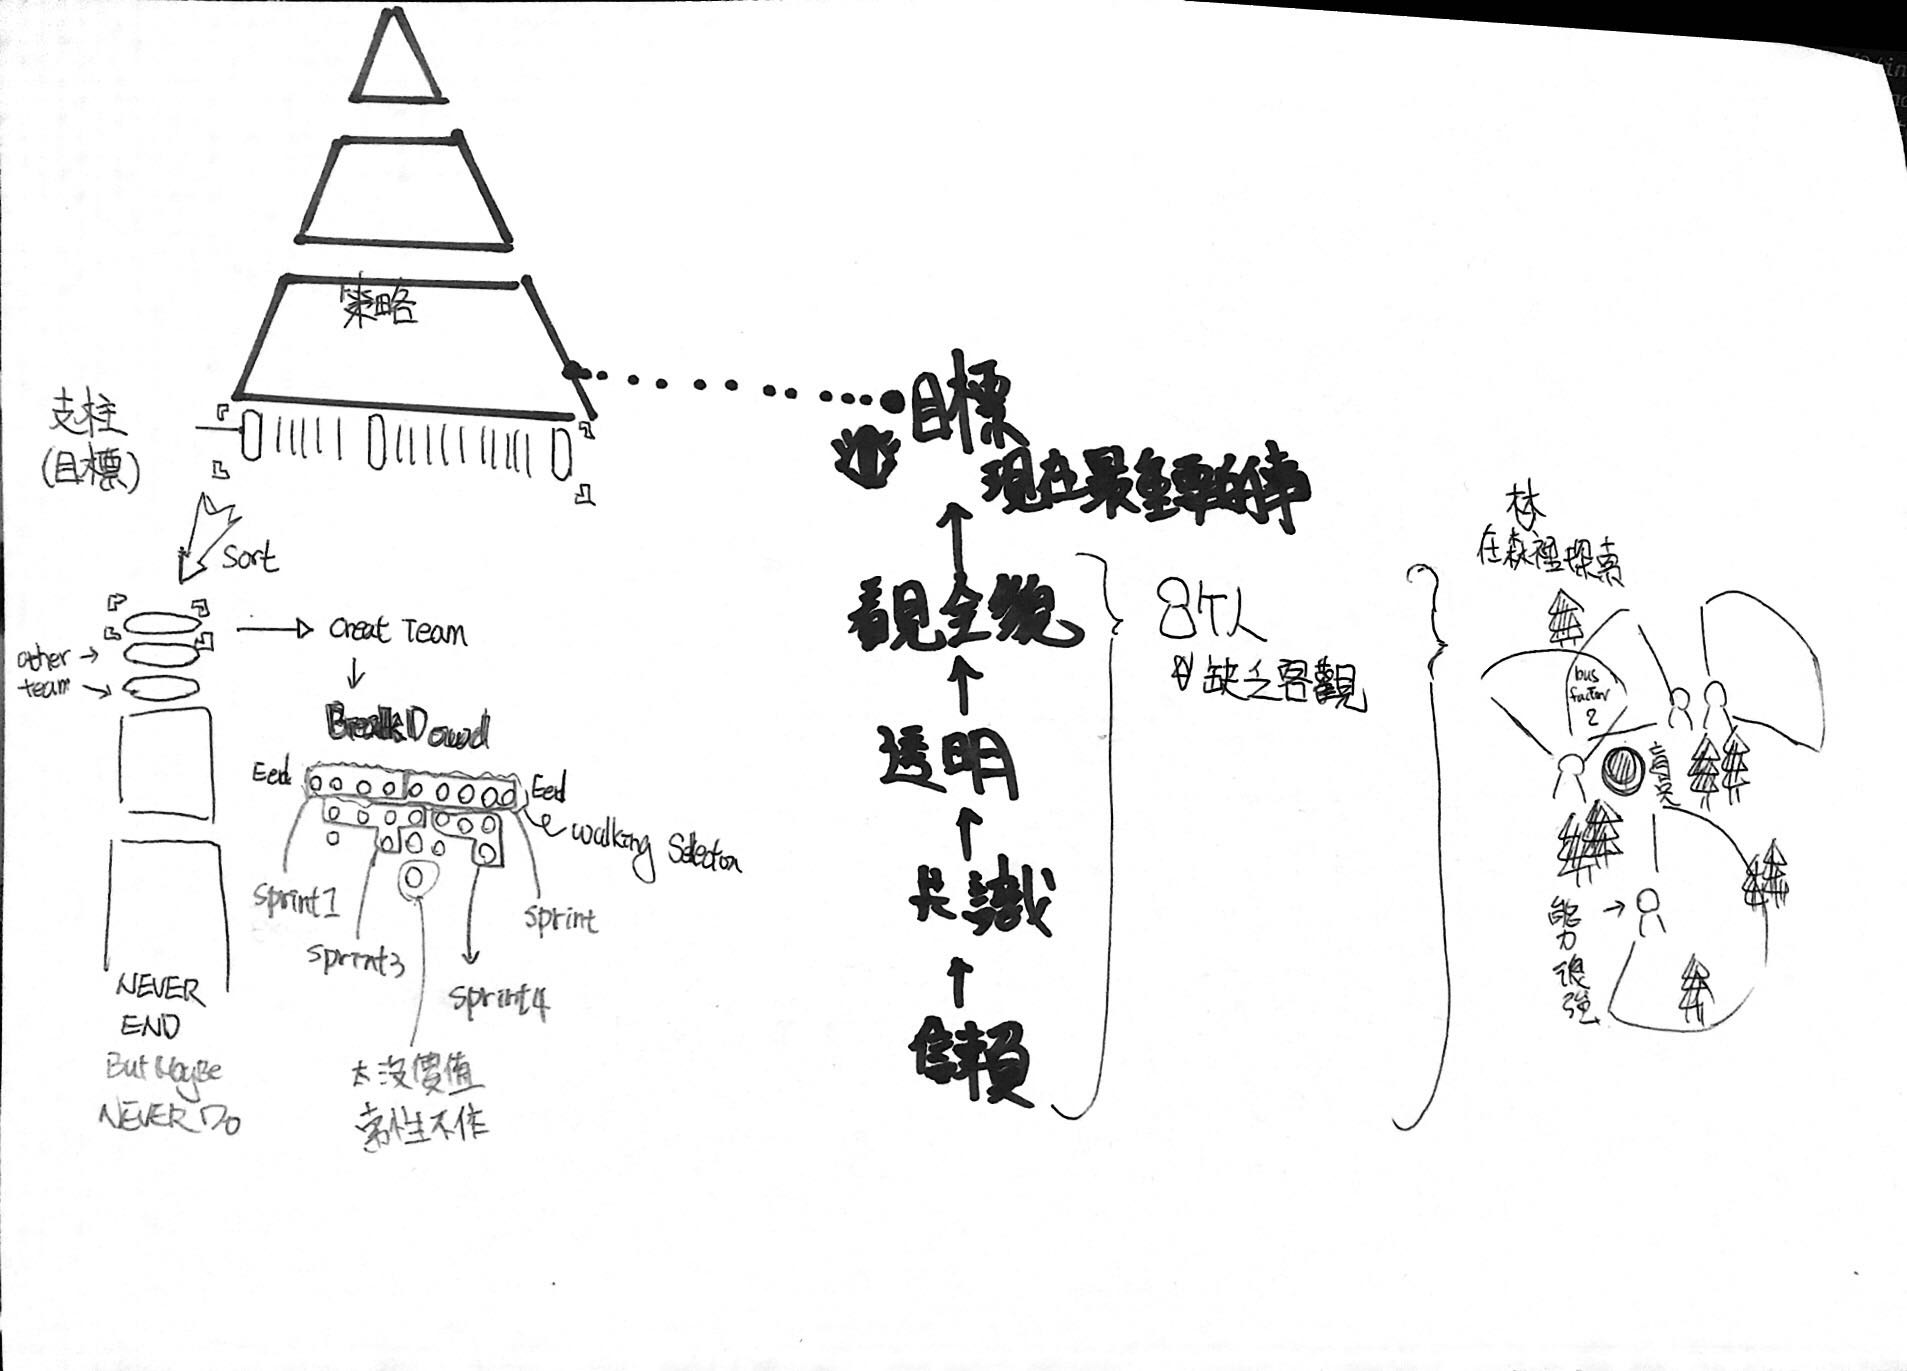 策略
支柱
(目標)
Sort
other
team
Creat Team
BreakDowd
Eed
Eed
Walking Selecton
sprint1
sprint3
sprint4
sprint
NEVER
END
But MayBe
NEVER DO
太沒價值
常性不作
目標
現在最重要的事
看見全貌
透明
共識
信賴
8个人
缺乏客觀
在森裡探索
bus
factor
2
能力很強